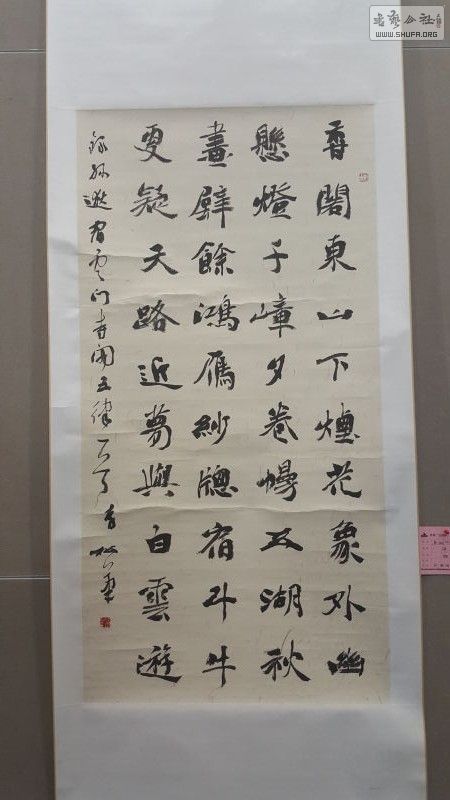 書藝公社
WWW.SHUFA.ORG
香閣東山下煙花象外幽
懸燈千嶂夕卷幔五湖秋
畫壁餘鴻鴈紗牕宿斗牛
更疑天路近夢與白雲遊
錄孫逖宿雲门寺阁五律